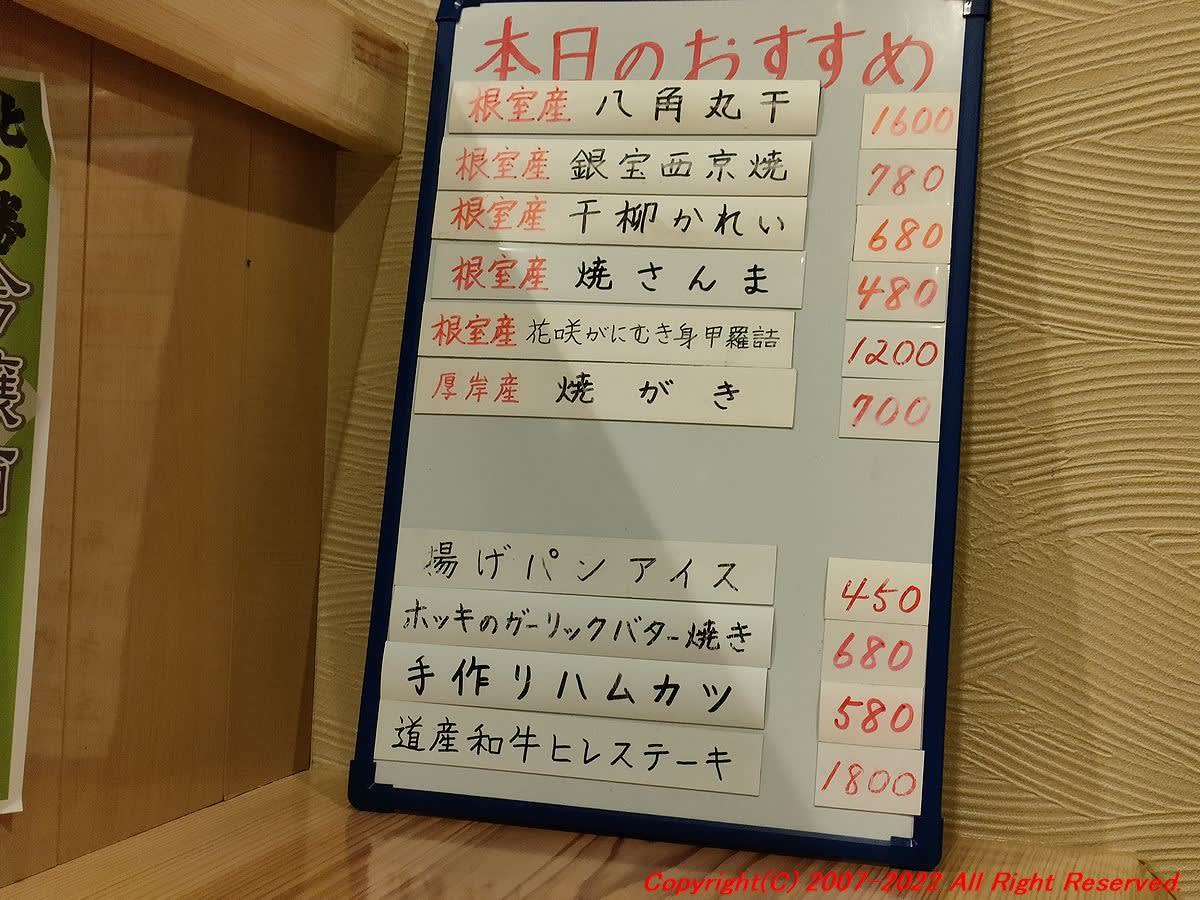 本日のおすすめ
根室産 八角丸干 1600
根室産 銀宝西京焼 780
根室産 干柳かれい 680
根室産 焼さんま 480
根室産 花咲がにむき身甲羅詰 1200
厚岸産 焼がき 700
揚げパンアイス 450
ホッキのガーリックバター焼き 680
手作りハムカツ 580
道産和牛ヒレステーキ 1800
北の勝
Copyright(C) 2007-2022 All Right Reserved.